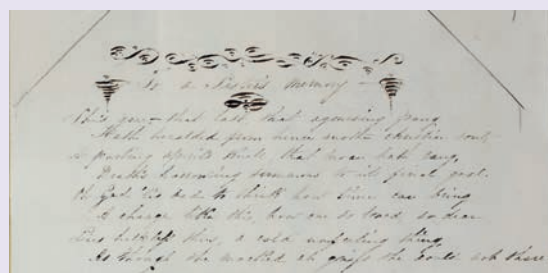 To a Sister's Memory
this, that last, that agonising pang
Hath heralded from hence another christian soul,
parting spirit's that hath rang,
Death's summons to its final goal.
Oh God 'tis sad to think how time can bring
A change like this, how one so loved, so dear
Lies helpless thus, a cold unfeeling thing,
As though she she could not share